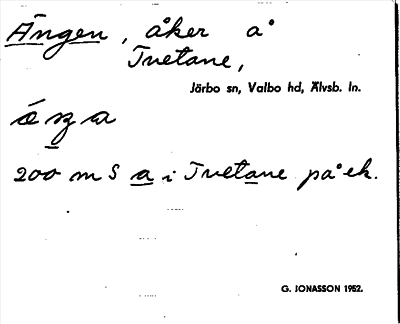 Ängen, åker å
Tvetane,
Järbo sn, Valbo hd, Älvsb. ln.
200 m S a i Tvetane på ek.
G. JONASSON 1952.